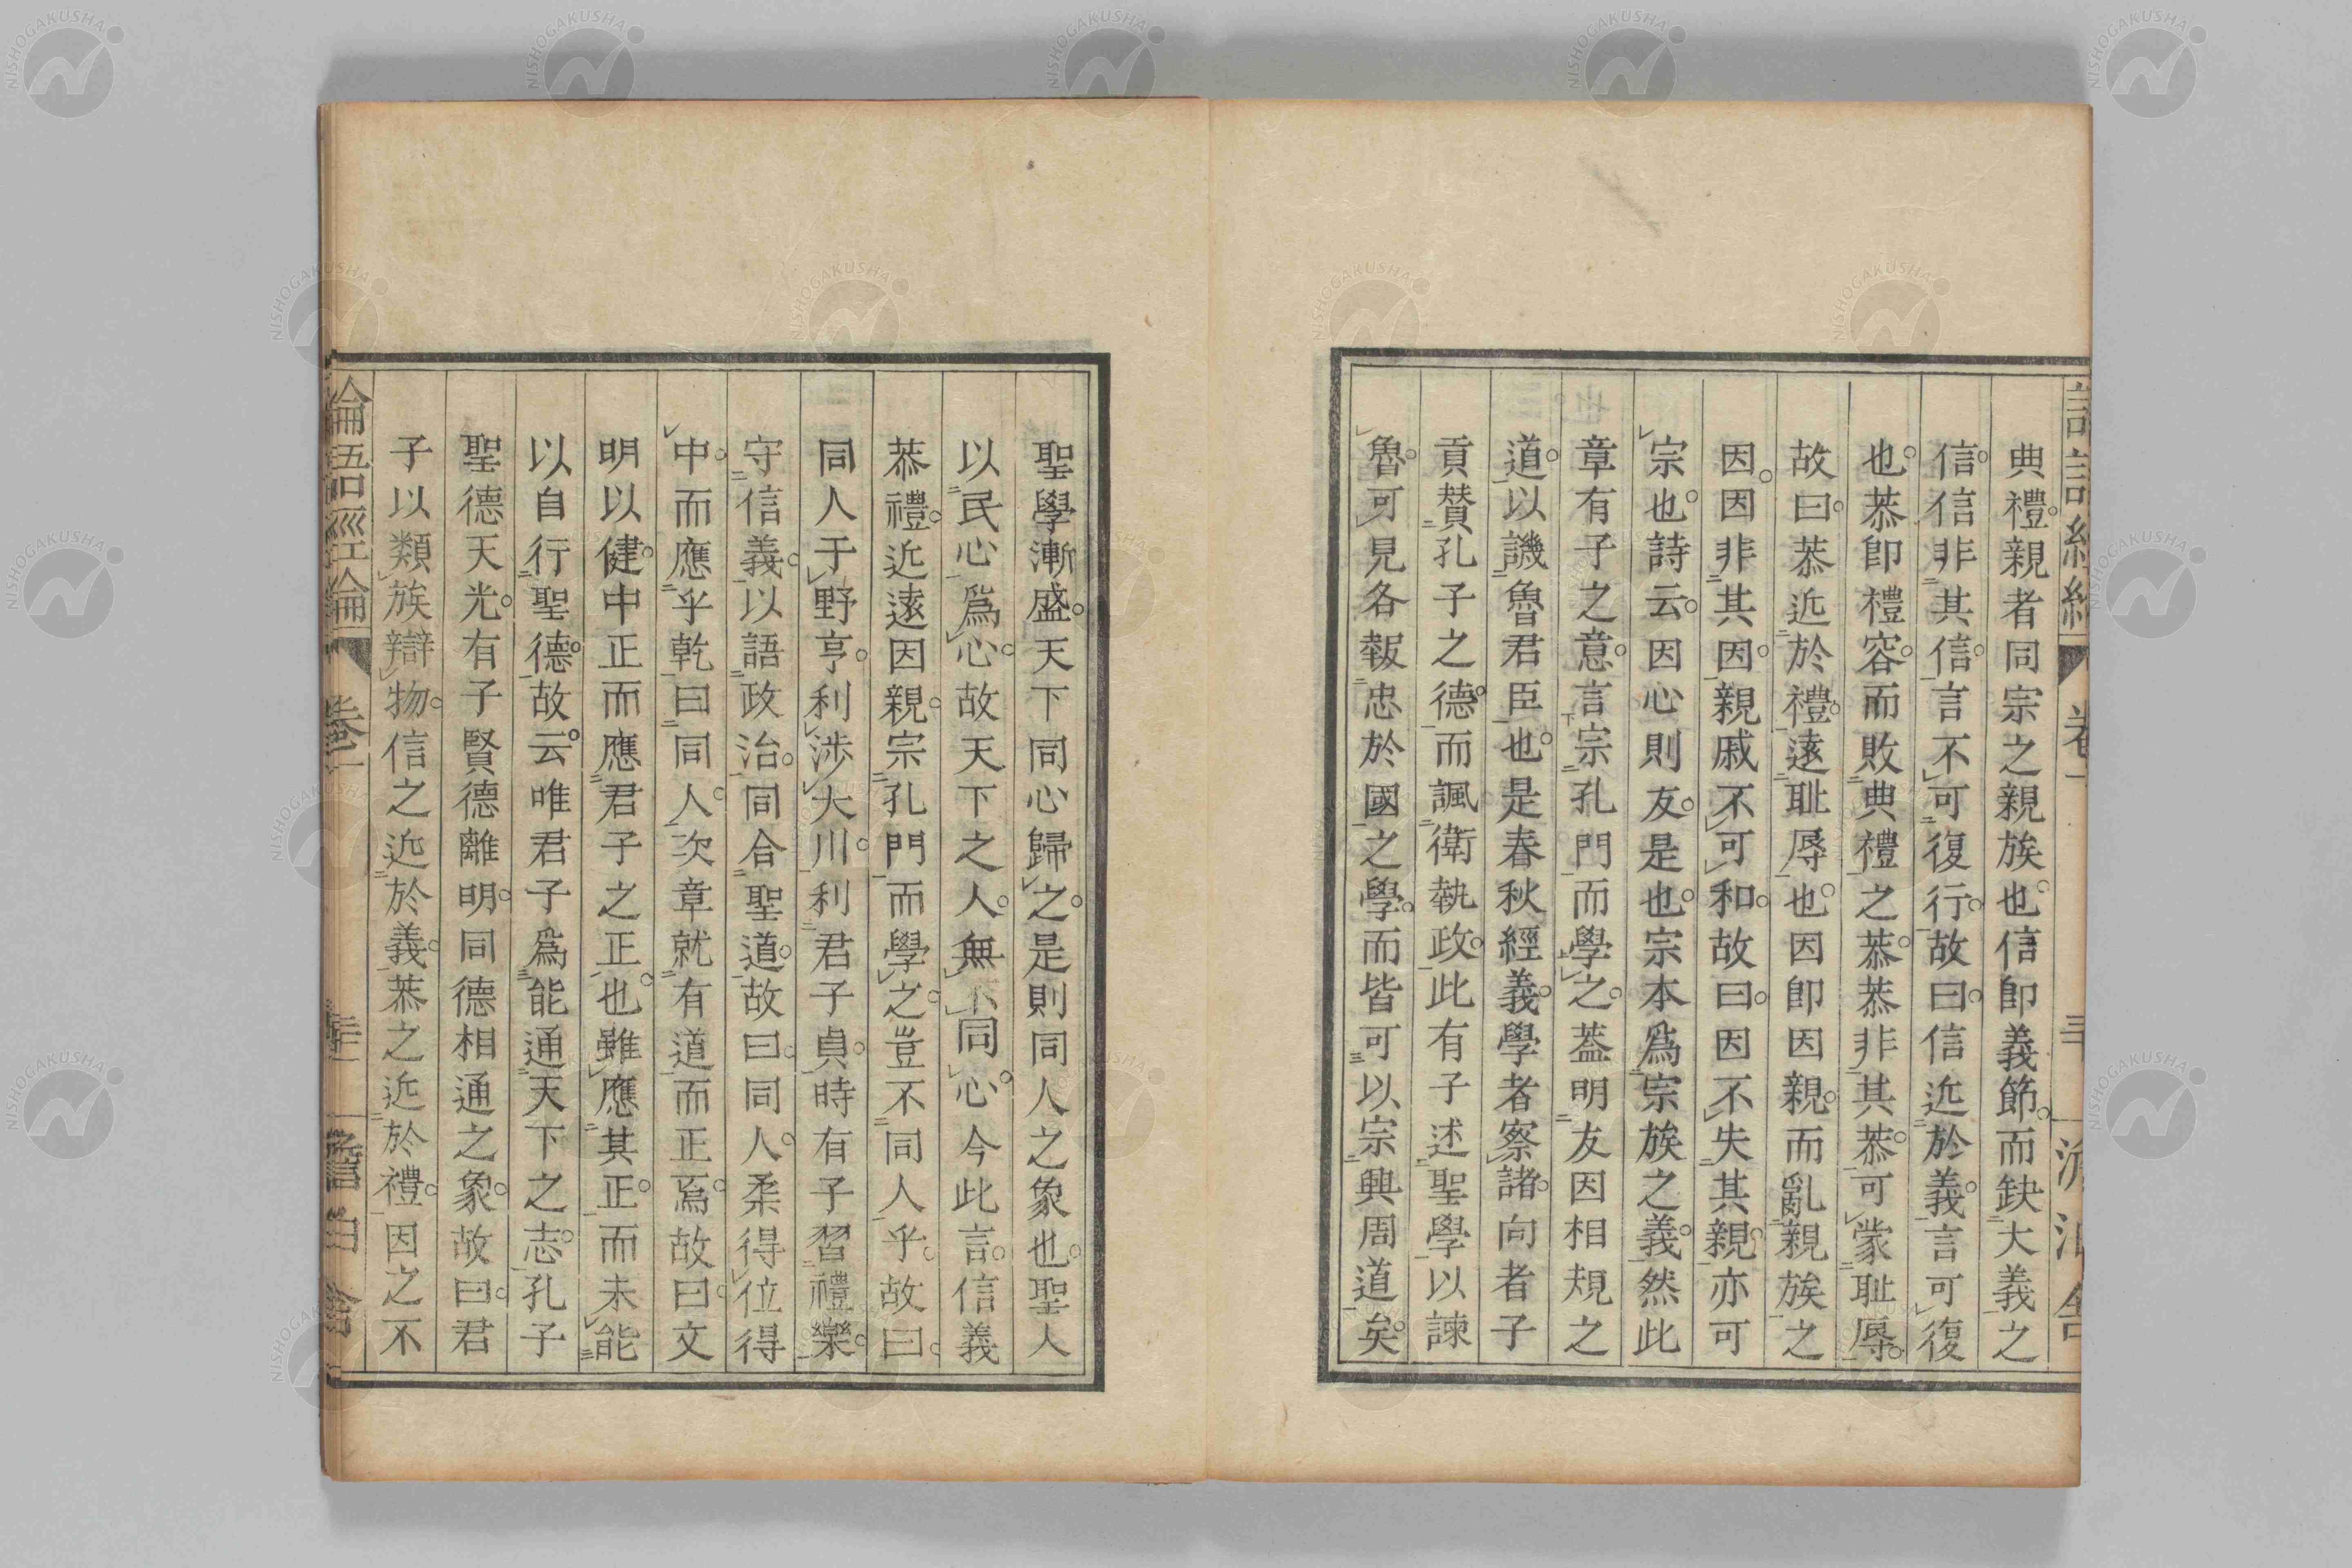 典禮。親者同宗之親族也。信卽義節。而缺大義之
信。信非其信。言不可復行。故曰。信近於義。言可復
也。恭卽禮容。而敗典禮之恭。恭非其恭。可蒙耻辱。
故曰。恭近於禮。遠耻辱也。因卽因親。而亂親族之
因。因非其因。親戚不可和。故曰。因不失其親。亦可
宗也。詩云。因心則友。是也。宗本爲宗族之義。然此
章有子之意。言宗孔門而學之。蓋明友因相規之
道。以譏魯君臣也。是春秋經義。學者察諸。向者子
貢贊孔子之德。而諷衛執政。此有子述聖學以諫
魯。可見各報忠於國之學。而皆可以宗興周道矣。
聖學漸盛。天下同心歸之。是則同人之象也。聖人
以民心爲心。故天下之人。無不同心。今此言。信義
恭禮。近遠因親。宗孔門而學之。豈不同人乎。故曰。
同人于野亨。利涉大川。利君子貞。時有子習禮樂。
守信義。以語政治。同合聖道。故曰。同人。柔得位得
中。而應乎乾。曰同人。次章就有道而正焉。故曰。文
明以健。中正而應。君子之正也。雖應其正。而未能
以自行聖德。故云。唯君子爲能通天下之志。孔子
聖德天光。有子賢德離明。同德相通之象。故曰。君
子以類族辯物。信之近於義。恭之近於禮。因之不
論語經論 卷一